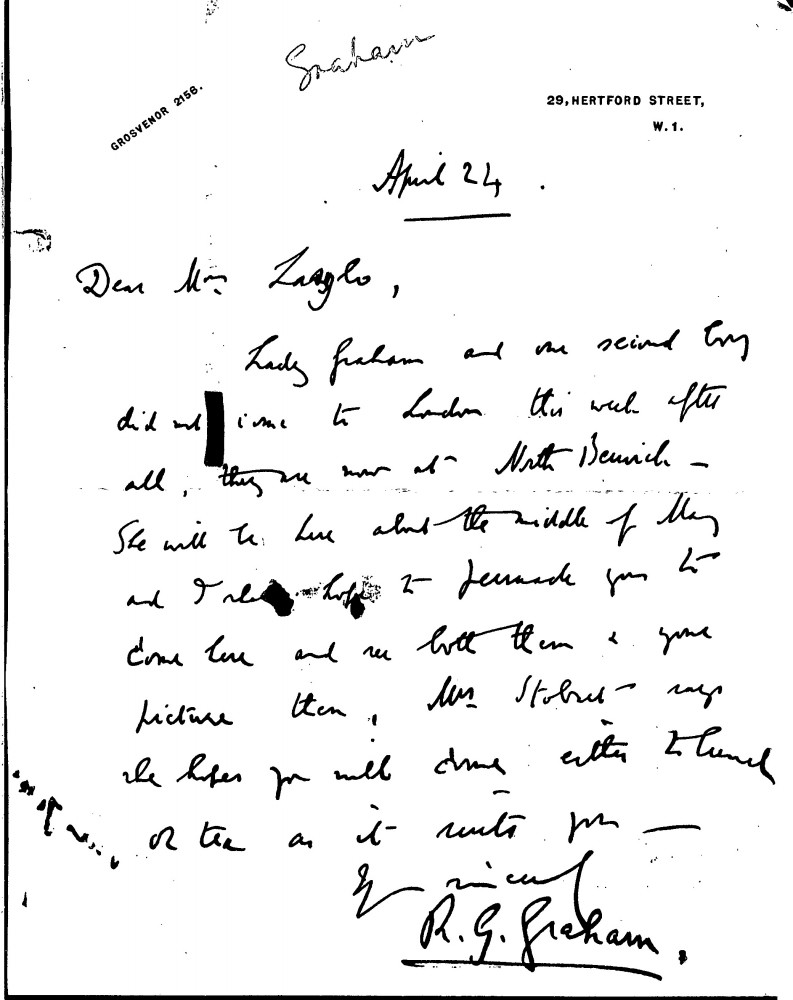 Graham
GROSVENOR 2156.
29, HERTFORD STREET,
W.1.
April 24.
Dear Mrs Laszlo,
Lady Graham and our second boy
did not come to London this week after
all, they are now at North Berwick –
She will be here about the middle of May
and I shall hope to persuade you to
come here and see both them & your
picture then, Mrs Stobart says
she hopes you will come either to lunch
or tea as it suits you —
Yrs sincerely
R. G. Graham.